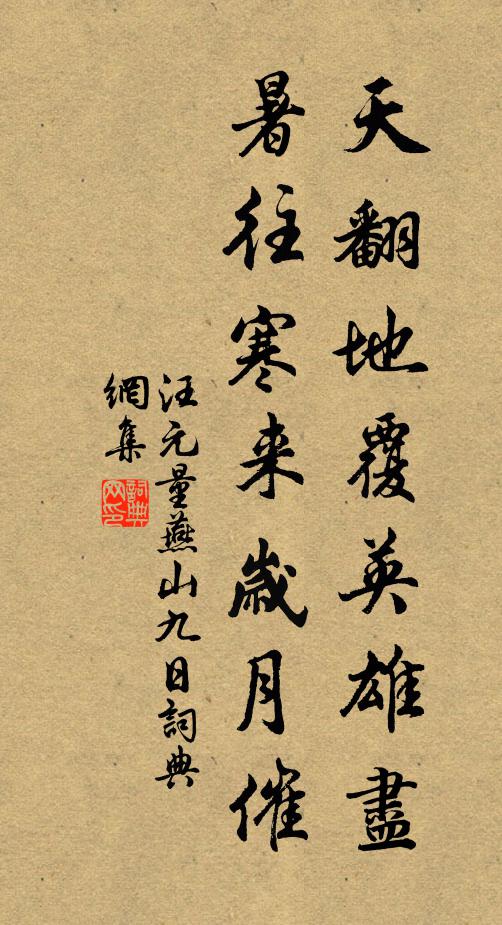 天翻地覆英雄盡
暑往寒来歲月催
汪元量燕山九日詞典
網集
詞典
网印